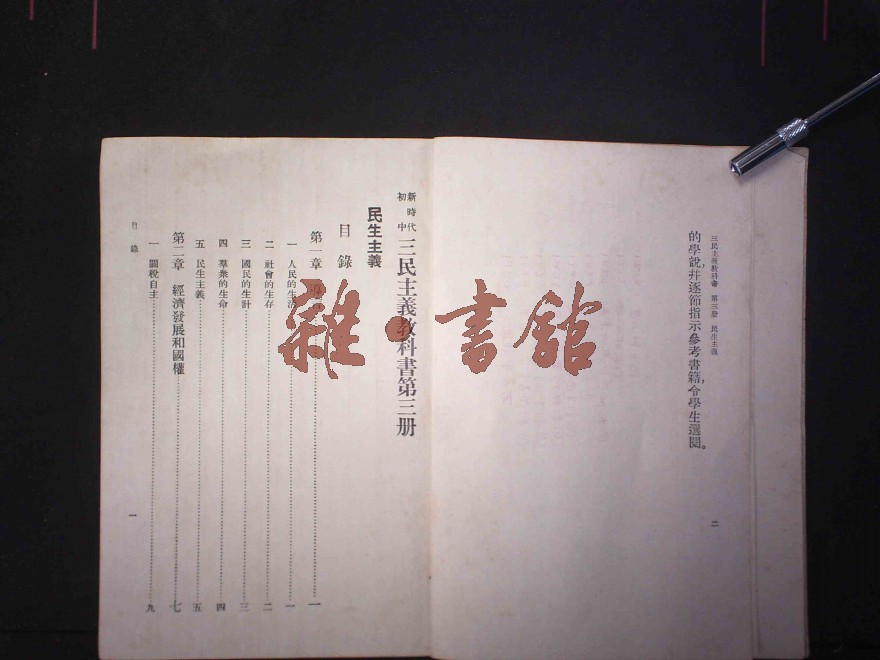 三民主義教科書 第三册 民生主義
的學說,并逐節指示參考書籍,令學生選閱。
二
新時代
初中
三民主義教科書第三册
民生主義
目錄
第一章 一
一 人民的生活 一
二 社會的生存 二
三 國民的生計 三
四 羣衆的生命 四
五 民生主義 五
第二章 經濟發展和國權 七
一 關稅自主 九
目錄
一
雜·書館